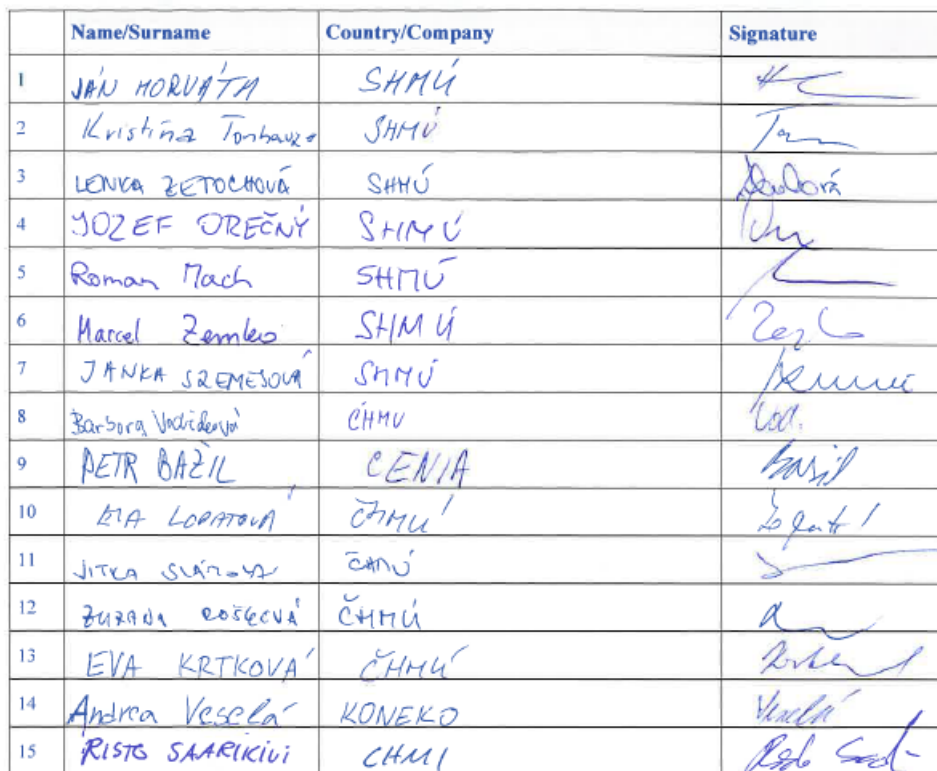 Name/Surname Country/Company Signature
1 JÁN HORVÁTH SHMÚ
2 Kristína Tonhauze SHMÚ
3 LENKA ZETOCHOVÁ SHMÚ
4 JOZEF OREČNÝ SHMÚ
5 Roman Mach SHMÚ
6 Marcel Zemko SHMÚ
7 JANKA SZEMESOVÁ SHMÚ
8 Barbora ČHMÚ
9 PETR BAŽIL CENIA Bažil
10 LOPATOVÁ ČHMÚ
11 JITKA ČHMÚ
12 ZUZANA ROŠKOVÁ ČHMÚ
13 EVA KRTKOVÁ ČHMÚ
14 Andrea Veselá KONEKO Veselá
15 RISTO SAARIKIVI CHMI